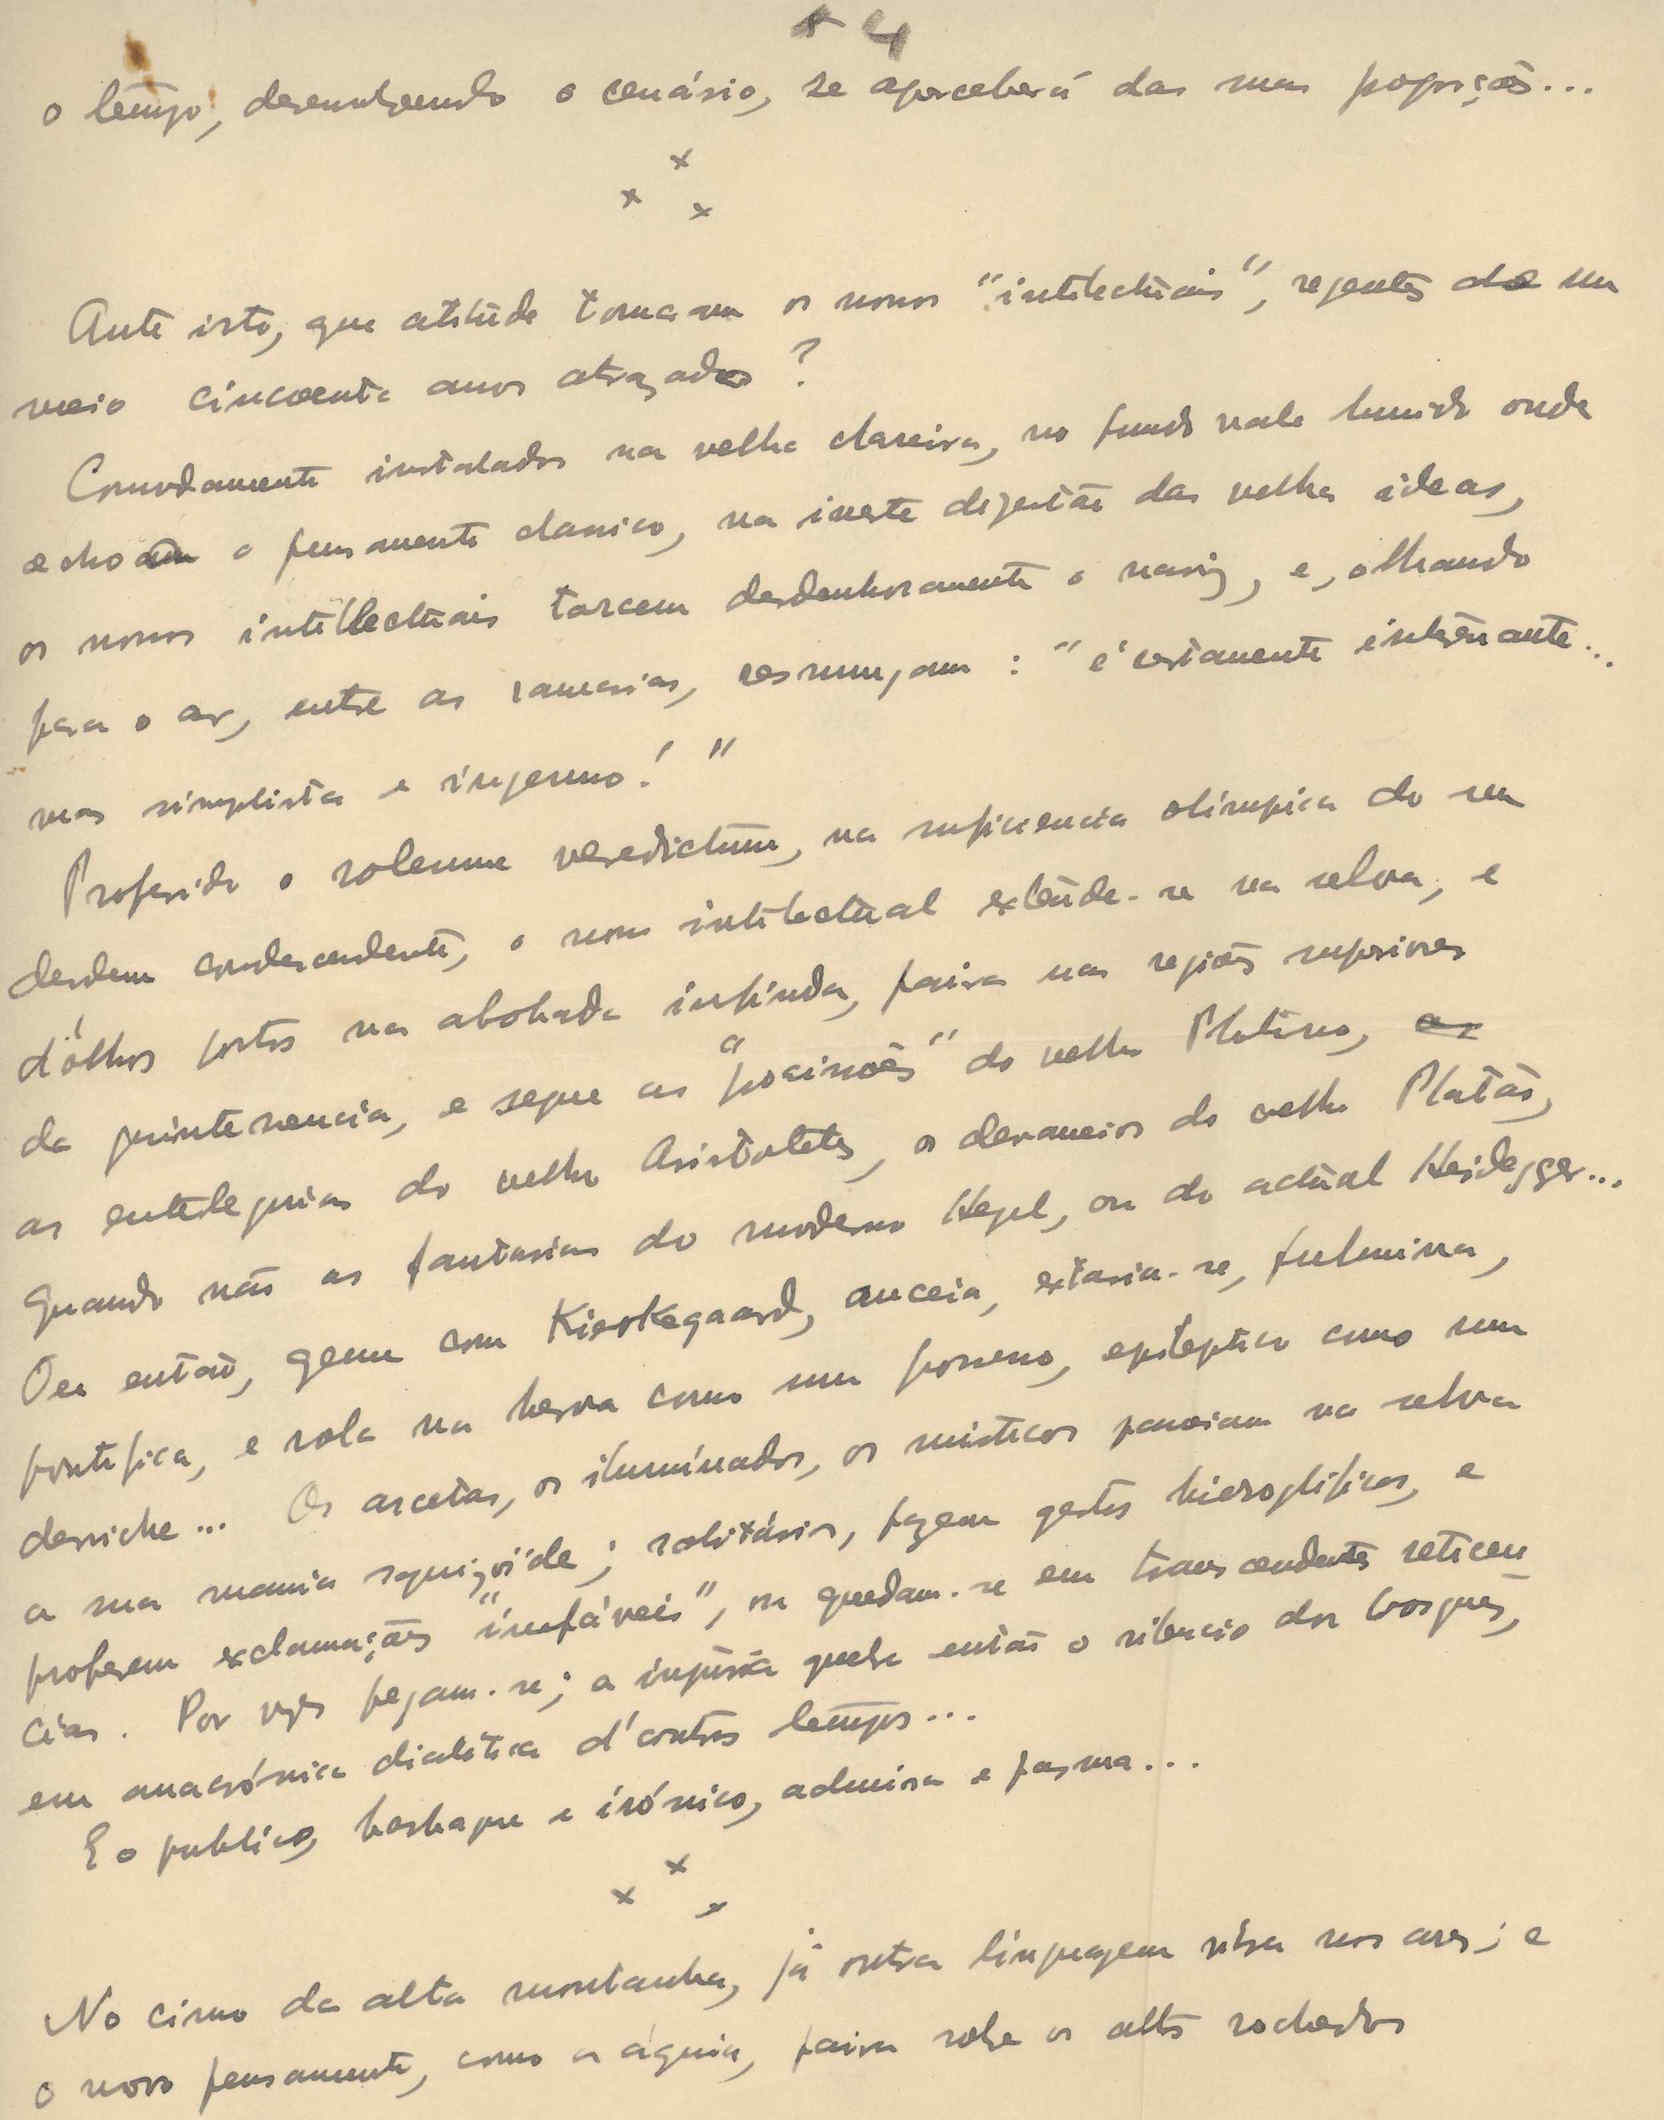 4
o tempo, desenvolvendo o cenário, se aperceberá das suas posições...
x x x
Ante isto, que atitude tomaram os nossos "intelectuais", regentes de um
meio cincoenta anos atrazado?
Comodamente instalados na velha clareira, no fundo vale humido onde
echoam o pensamento classico, na inerte digestão das velhas ideas,
os nossos intellectuais torcem desdenhosamente o nariz, e, olhando
para o ar, entre as ramarias, resmungam: "é certamente interessante...
mas simplista e ingenuo!"
Proferido o solemne veredictum, na suficiencia olimpica do seu
desdem condescendente, o nosso intelectual extende-se na selva, e
d'olhos postos na abobada infinda, paira nas regiões superiores
da quintessencia, e segue as "processões" do velho Plotino,
as enteléquias do velho Aristoteles, os devaneios do velho Platão,
Quando não as fantasias do moderno Hegel, ou do actual Heidegger...
Ou então, geme com Kierkegaard, anceia, extasia-se, fulmina,
pontifica, e rola na herva como um possesso, epileptico como um
derviche... Os ascetas, os iluminados, os misticos passeiam na selva
a sua mania squizoide; solitários, fazem gestos hieroglificos, e
proferem exclamações "inefáveis", ou quedam-se em transcendentes reticen
cias. Por vezes pegam-se; a injúria quebra então o silencio dos bosques,
em anacrónica dialética d'outros tempos...
E o publico, basbaque e irónico, admira e pasma...
x x x
No cimo da alta montanha, já outra linguagem vibra nos ares; e
o novo pensamento, como a águia, paira sobre os altos rochedos